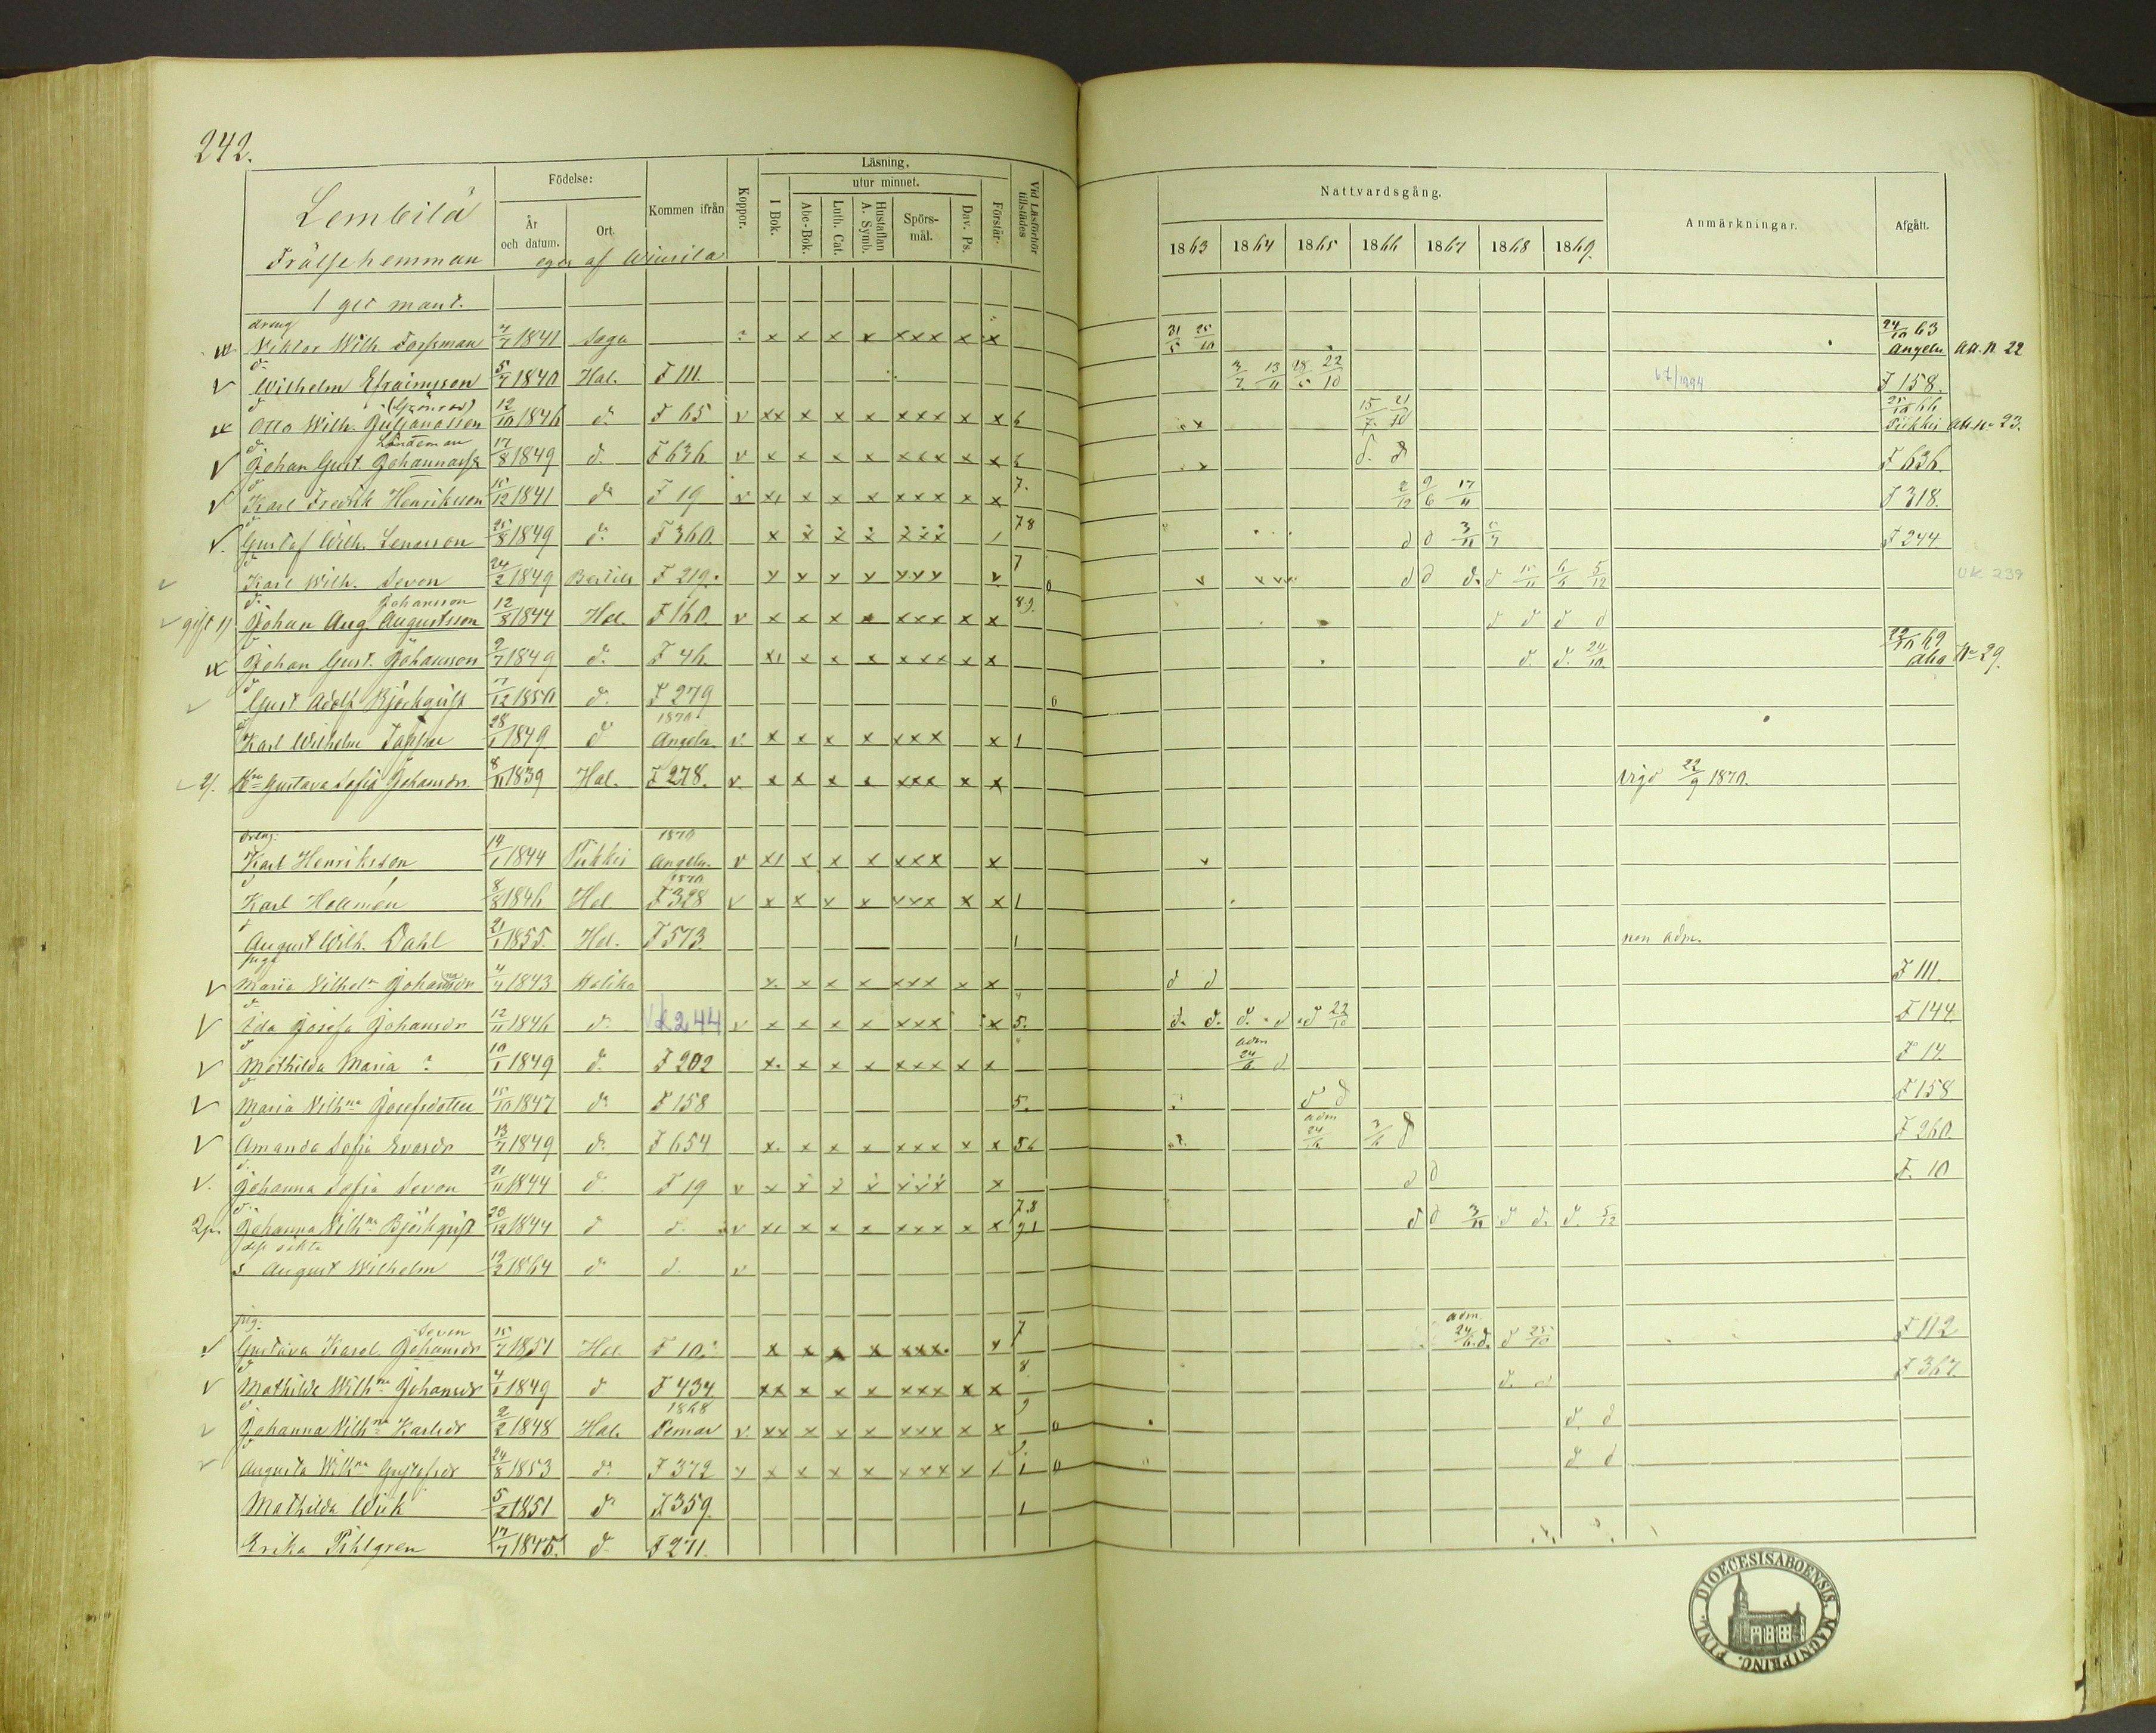 242.
Lembilä
Frälsehemman
egdt af Winsila
1 ger mant.
Födelse:
År och datum.
Ort.
Kommen ifrån
Koppor.
Läsning.
utur minnet.
I Bok.
Abc-Bok.
Luth. Cat.
Hustaflan A. Symb.
Spörsmål.
Dav. Ps.
Förstår.
Vid Läsförhör tillstädes
Nattvardsgång.
1863 1864 1865 1866 1867 1868 1869.
Anmärkningar.
Afgått.
dreng
Viktor Wilh Forssman 4/7 1841 Sagu x x x x xxx x x 31/5 25/10 24/10 63 Angeln Att. N 22
d:
V Wilhelm Efraimsson 5/7 1840 Hal. F 111. 3/7 13/11 28/5 22/10 F 158.
d
Otto Wilh. Julianasson (Grönroos) 12/10 1846 d. F 65 v xx x x x xxx x x 6 15/7 21/10 25/10 66 Piikkis Att. No 23.
d:
V Johan Gust. Johannass Lindeman 17/8 1849 d. F 636 v x x x x xxx x x 6 d. d F 636.
d
V Karl Fredrik Henriksson 15/12 1841 do F 19 v x x x x xxx x x 7. 2/12 9/6 17/11 F 318.
d
V. Gustaf Wilh. Lenasson 25/8 1849 d: F 360. x x x x xxx 1 78 d d 3/11 F 244.
d
Karl Wilh. Seven 24/2 1849 F 219. v x x v xxx v 7 0 d d d. d 15/11 6/6 5/12 UK 239
d:
gift 1) Johan Aug. Augustsson Johansson 12/8 1844 Hal. F 160. v x x x x xxx x x 8.9. d d d d
d
Johan Gust. Johansson 2/7 1849 d. F 46. x x x x xxx x x d. d. 24/10 22/10 69 Åbo No 29.
d
Gust. Adolf Björkqvist 7/12 1850 d. F 279 6
d
Karl Wilhelm 28/1 1849 d 1870 Angeln. v. x x x x xxx x 1
2). Hu Gustava Sofia Johansdr. 8/11 1839 Hal. F 278. v. x x x x xxx x x Vigd 22/9 1870.
dreng:
Karl Henriksson 14/1 1844 Piikkis 1870 Angeln. v x x x x xxx x
d
Karl Holmén 8/8 1846 Hal 1870 F 328 v x x v x xxx x x 1
d
August Wilh. Dahl 21/1 1855. Hal. F 573. 1 non adm.
piga
V Maria Vilhel:a Johansdr 4/7 1843 Haliko x. x x x xxx x x d d F 111.
d
V Ida Josefa Johansdr 12/11 1846 d: VK 244 v x x x x xxx x 5. d. d. d. d d 22/10 F 144.
d
V Mathilda Maria ? 10/1 1849 d. F 202 x. x x x xxx x x adm 24/6 d F 14.
d
V Maria Vilh:na Josefsdotter 15/10 1847 do F 158 5. d d F 158
d
V Amanda Sofia Evasdr 13/7 1849 d: F 654 x. x x x xxx x x 56 adm 24/6 3/6 d F 260.
d.
V. Johanna Sofia Seven 21/11 1844 d. F 19 v x x x x xxx x d d F. 10
d:
Johanna Vilh:na Björkqvist 23/12 1844 d d. v x x x x xxx x x 7.8 91 d d 3/11 d d. d. 5/12
dess oäkta
s August Wilhelm 19/2 1864 d d. v
pig:
Gustava Karol. Johansdr Seven 15/7 1851 Hal. F 10. x x x x xxx v 7 adm. 24/6. d. d 25/10 F 112
d
V Mathilda Wilh:na Johansdr 4/1 1849 d F 434. xx x x x xxx x x 8 d. d F 367.
d
Johanna Vilh:na Karlsdr 2/2 1848 Hal. 1868 Pemar v xx x x x xxx x x 9 0 d. d
d
Augusta Wilh:na Gustafsdr 24/8 1853 d: F 372 v x x x x xxx x 1 0 d. d
Mathilda Wiik 5/2 1851 d F 359. 1
Erika Pihlgren 17/7 1845. d F 271.
DIOECESIS ABOENSIS. MAGNI PRINC. FINL.